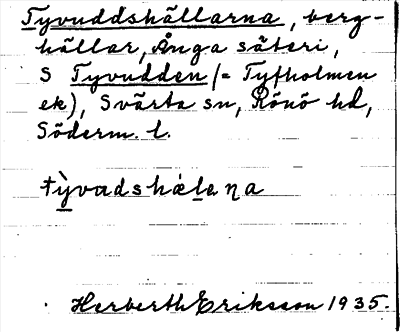 Tyvuddshällarna, berg-
hällar, Ånga säteri,
S Tyvudden (= Tyfholmen
ek), Svärta sn, Rönö hd,
Söderm. l.
Herberth Eriksson 1935.